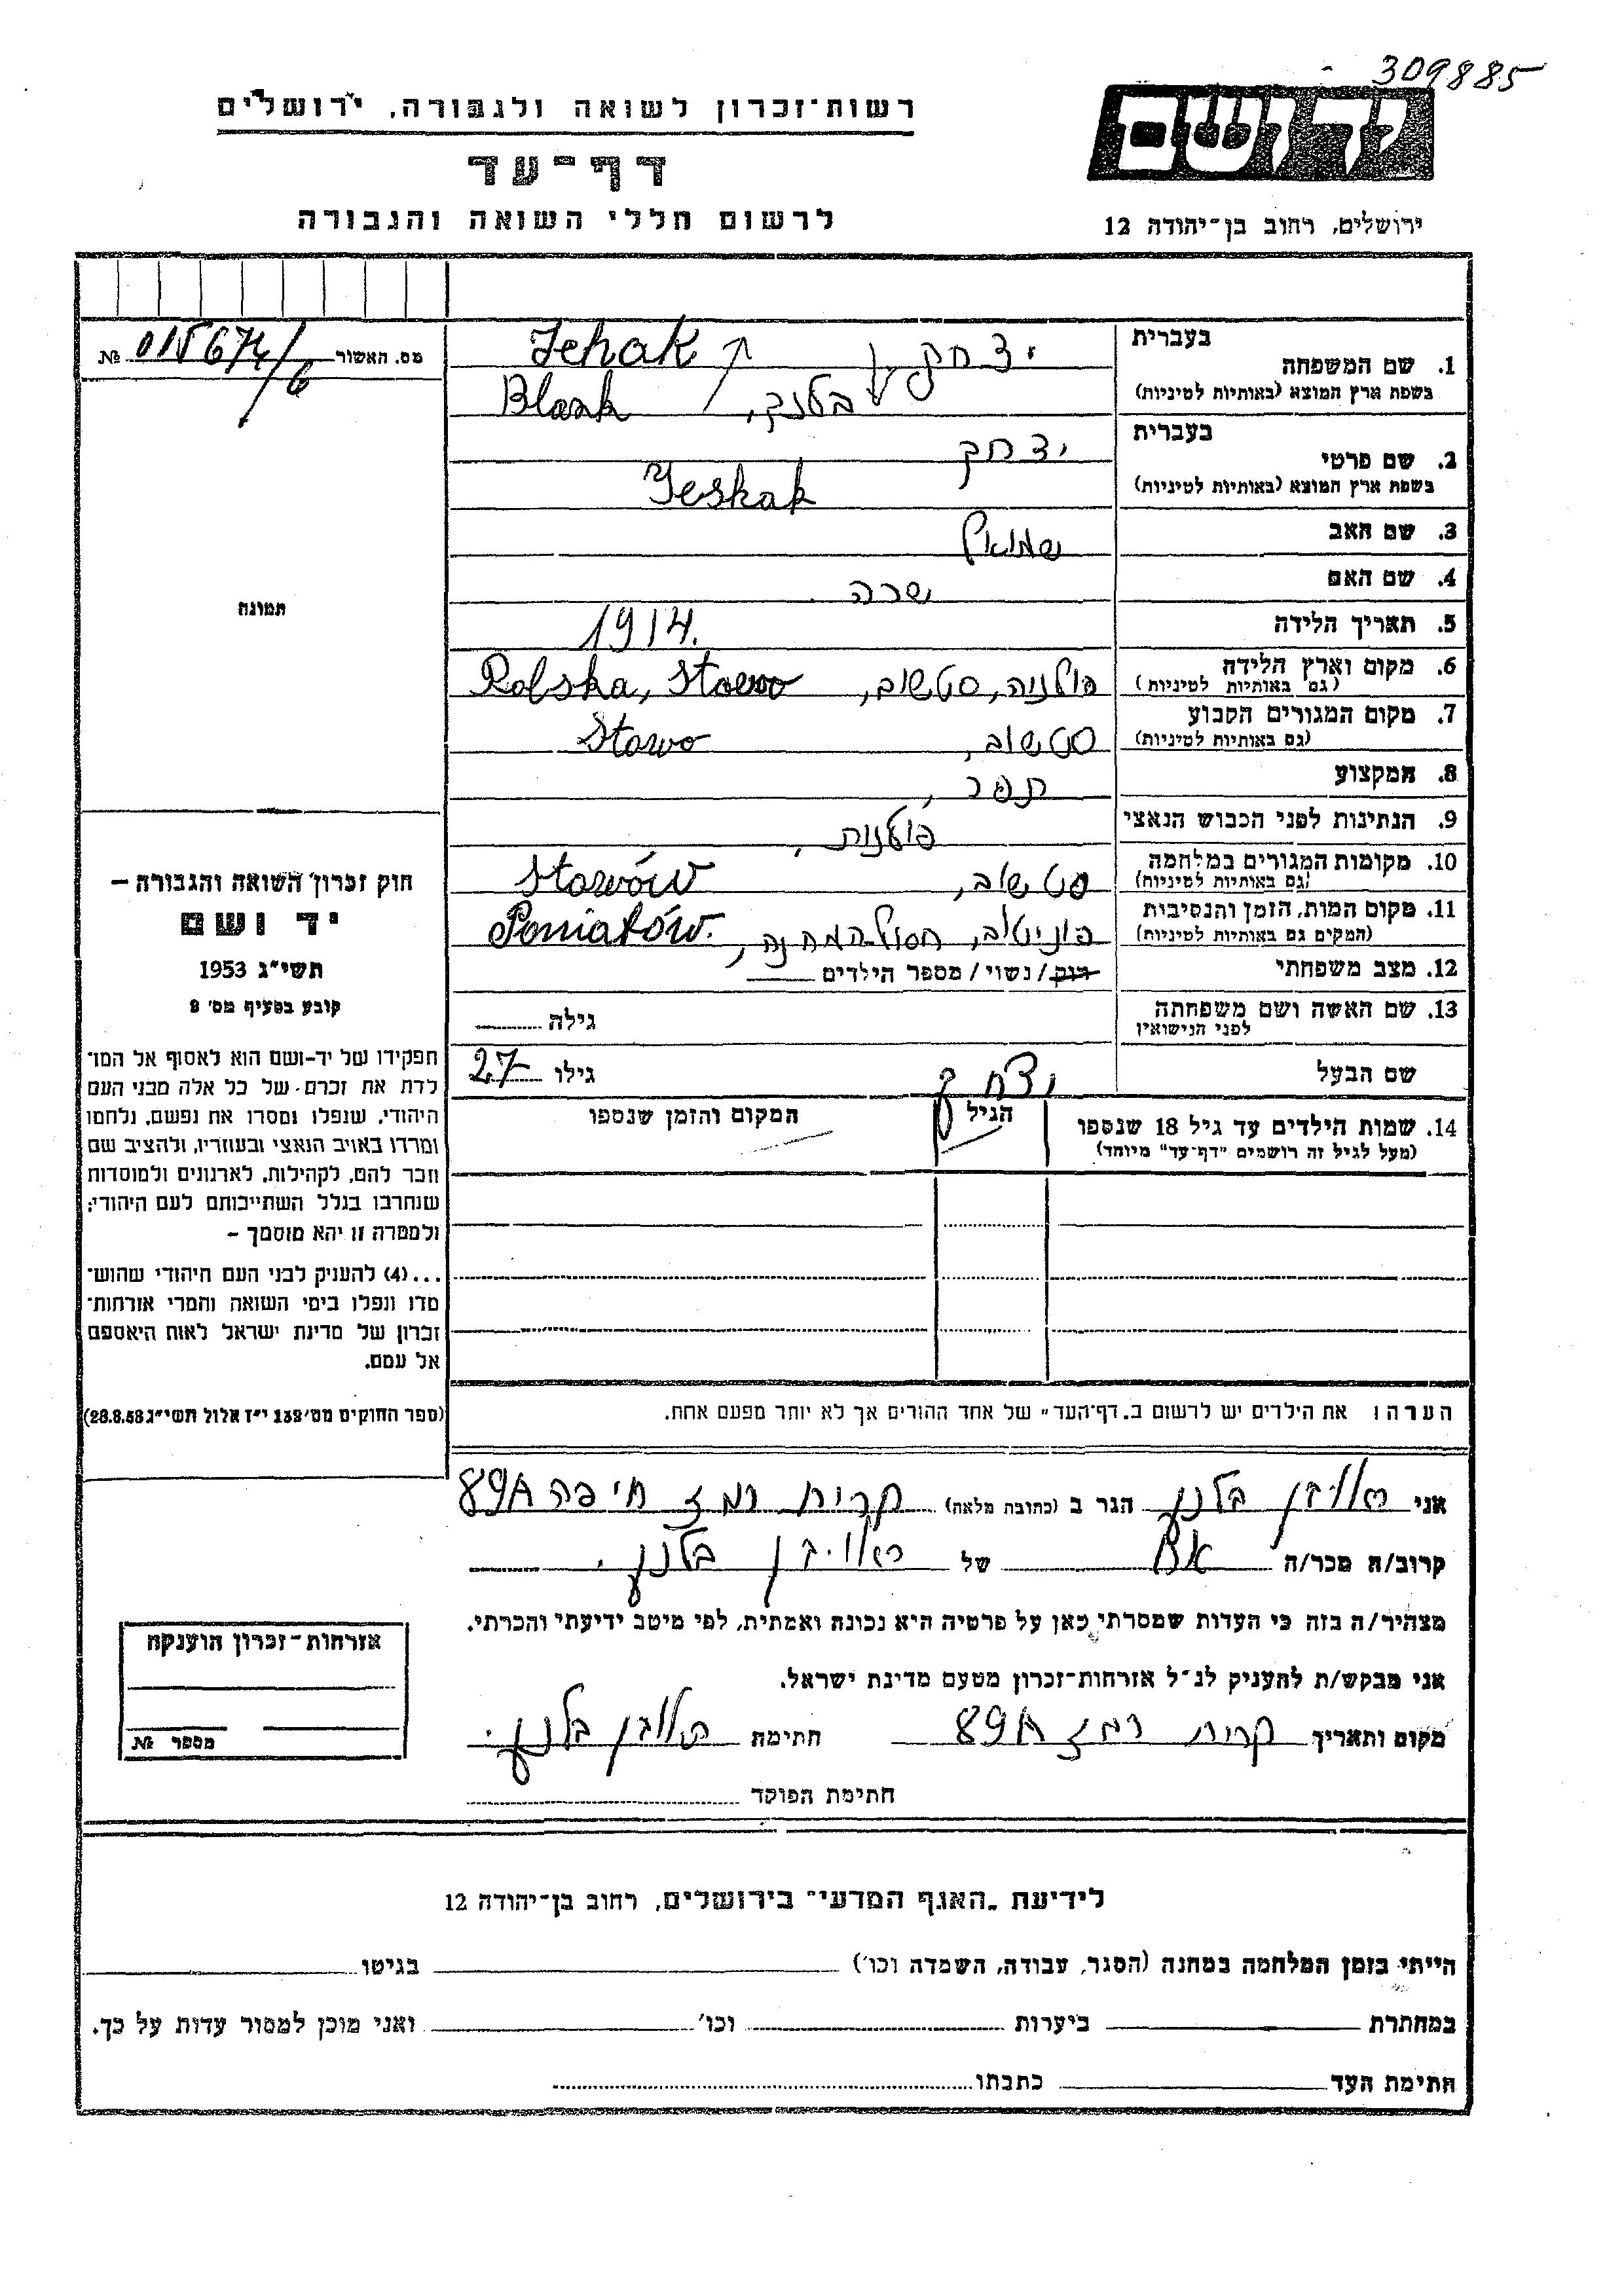 309885
רשות־זכרון לשואה ולגבורה, ירושלים
יד ושם
דף־עד
לרשום חללי השואה והגבורה
ירושלים, רחוב בן־יהודה 12
מס. האשור 015674/6 №
בעברית
1. שם המשפחה יצחק, Jchak
בשפת ארץ המוצא (באותיות לטיניות) בלנק, Blank
בעברית
2. שם פרטי יצחק
בשפת ארץ המוצא (באותיות לטיניות) Yeskak
3. שם האב שמואל
4. שם האם שרה
5. תאריך הלידה 1914.
6. מקום וארץ הלידה פולניה, סטשוב, Polska,
(גם באותיות לטיניות)
7. מקום המגורים הקבוע סטשוב, Stawo
(גם באותיות לטיניות)
8. המקצוע תפר,
9. הנתינות לפני הכבוש הנאצי פולנית,
10. מקומות המגורים במלחמה סטשוב, Stawów
(גם באותיות לטיניות)
11. מקום המות, הזמן והנסיבות פוניטוב, חסול המחנה, Poniatów.
(המקים גם באותיות לטיניות)
12. מצב משפחתי רוק/ נשוי/ מספר הילדים
13. שם האשה ושם משפחתה גילה
לפני הנישואין
שם הבעל יצחק גילו 27
14. שמות הילדים עד גיל 18 שנספו הגיל המקום והזמן שנספו
(מעל לגיל זה רושמים "דף־עד" מיוחד)
הערה: את הילדים יש לרשום ב„דף־העד" של אחד ההורים אך לא יותר מפעם אחת.
תמונה
חוק זכרון השואה והגבורה –
יד ושם
תשי"ג 1953
קובע בסעיף מס' 2
תפקידו של יד-ושם הוא לאסוף אל המו־
לדת את זכרם של כל אלה מבני העם
היהודי, שנפלו ומסרו את נפשם, נלחמו
ומרדו באויב הנאצי ובעוזריו, ולהציב שם
וזכר להם, לקהילות, לארגונים ולמוסדות
שנחרבו בגלל השתייכותם לעם היהודי;
ולמטרה זו יהא מוסמך –
...(4) להעניק לבני העם היהודי שהוש־
מדו ונפלו בימי השואה והמרי אזרחות־
זכרון של מדינת ישראל לאות היאספם
אל עמם.
(ספר החוקים מס' 132 י"ז אלול תשי"ג 28.8.53)
אני ראובן בלנק הגר ב (כתובת מלאה) קרית רמז חיפה 89A
קרוב/ה מכר/ה אח של ראובן בלנק.
מצהיר/ה בזה כי העדות שמסרתי כאן על פרטיה היא נכונה ואמתית, לפי מיטב ידיעתי והכרתי.
אני מבקש/ת להעניק לנ"ל אזרחות־זכרון מטעם מדינת ישראל.
מקום ותאריך קרית רמז 89A חתימת ראובן בלנק.
חתימת הפוקד
אזרחות־זכרון הוענקה
מספר №
לידיעת „האגף המדעי" בירושלים, רחוב בן־יהודה 12
הייתי בזמן המלחמה במחנה (הסגר, עבודה, השמדה וכו') בגיטו
במחתרת ביערות וכו' ואני מוכן למסור עדות על כך.
חתימת העד כתבתו